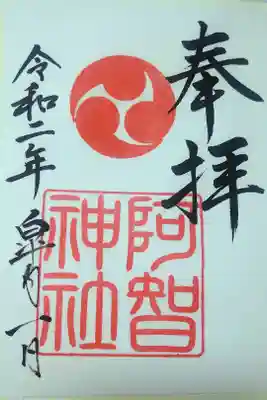 奉拝
阿智
神社
令和二年 皐月一日